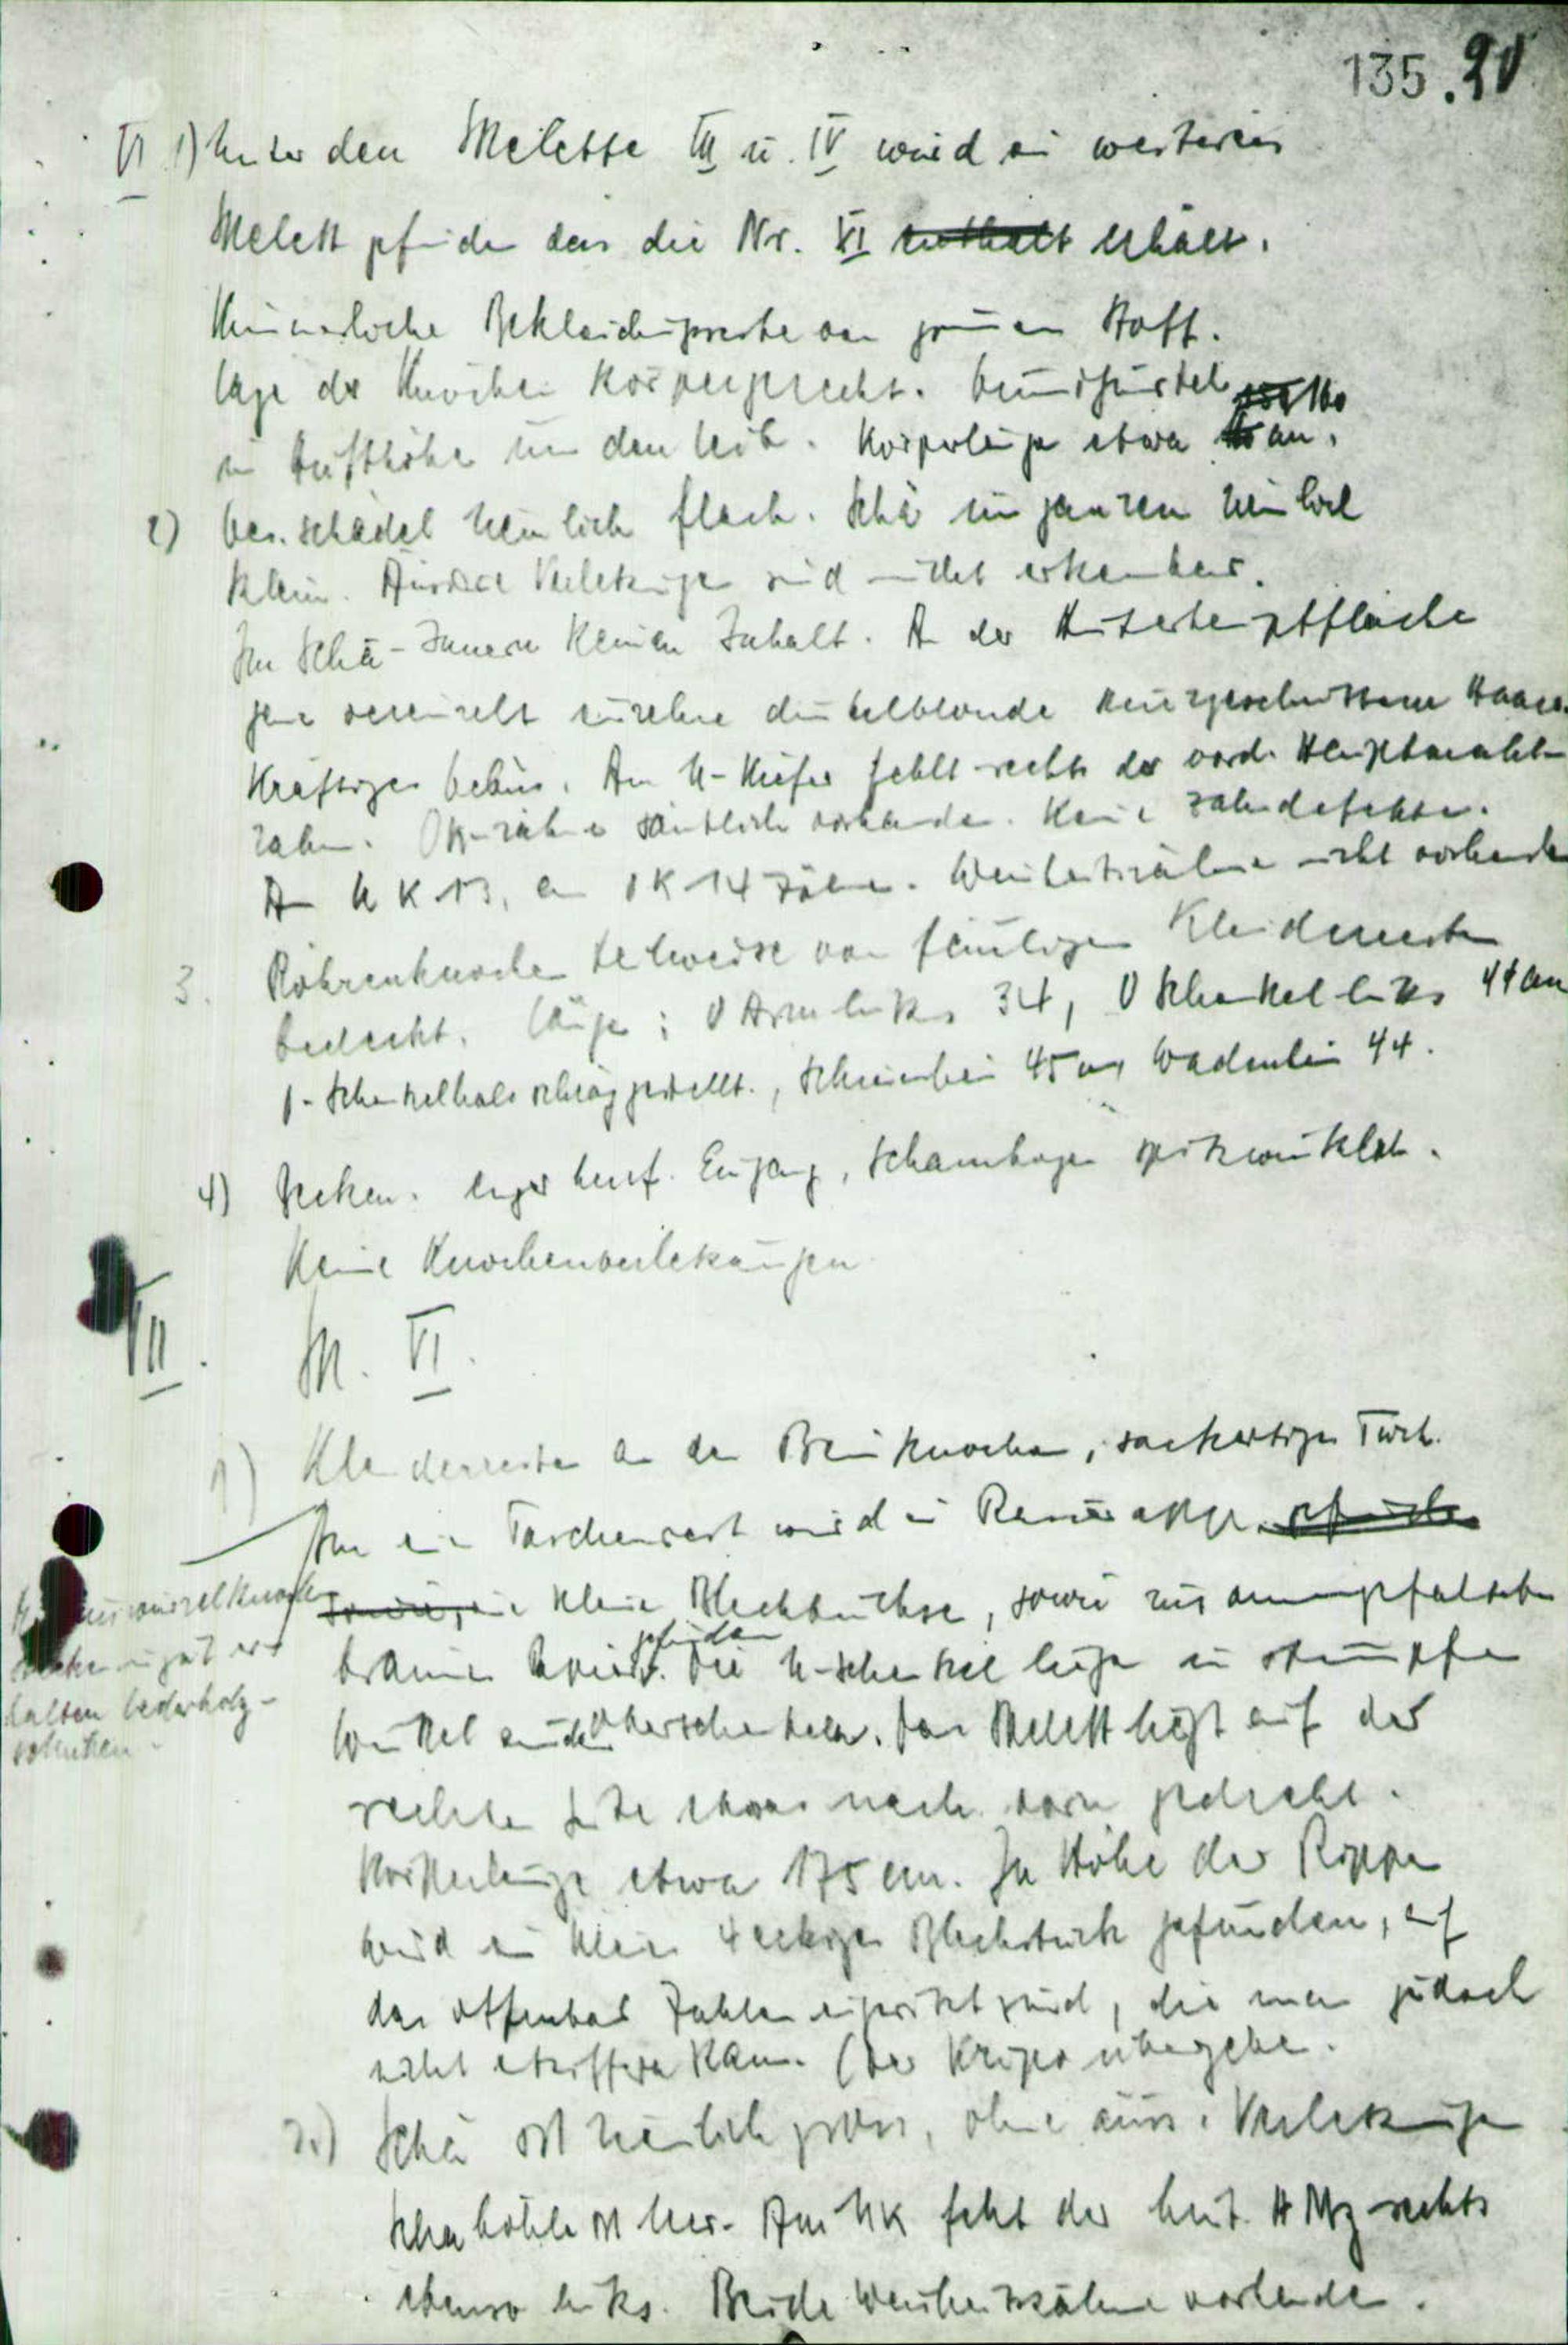 135. 20
VI 1) Unter den Skelette III u. IV wird ein weiteres
Skelett gefunden das die Nr. VI enthält erhält.
Kümmerliche Bekleidungsreste von grünem Stoff.
Lage der Knochen körpergerecht.
in Hüfthöhe um den Leib. Körperlänge etwa cm.
2) Ges. schädel ziemlich flach. Schä im ganzen ziemlich
klein. Äussere Verletzungen sind nicht erkennbar.
Im Schä-Innern keinen Inhalt. An der Hinterhauptfläche
ganz vereinzelt einzelne dunkelblonde kurzgeschnittene Haare.
Kräftiges Gebiss. Am U-Kiefer fehlt rechts der vord. Hauptmahl-
zahn. OK-zähne sämtlich vorhanden. Keine Zahndefekte.
Am UK 13, am OK 14 Zähne. Weisheitszähne nicht vorhanden
3. Röhrenknochen teilweise von fauligen Kleiderresten
bedeckt. Länge: O Arm links 34, O Schenkel links 44 cm
O-Schenkelhals schräg gestellt., Schienbein 45 cm Wadenbein 44.
4) Becken. enger Eingang, Schambogen spitzwinklich.
Keine Knochenverletzungen
VII. M. VI.
1) Kleiderreste an den Beinknochen, sackartiges Tuch.
In ein Taschenrest wird ein
sowie, eine kleine Blechbüchse, sowie zusammengefaltetes
braunes Papier gefunden. Die U-Schenkel liegen in stumpfen
Winkel zu den Oberschenkeln. Das Skelett liegt auf der
rechten Seite etwas nach vorn gedreht.
Körperlänge etwa 175 cm. In Höhe der Rippen
wird ein klein 4eckiges Blechstück gefunden, auf
das offenbar Zahlen eingeritzt sind, die man jedoch
nicht entziffern kann. (Der Kripo übergeben.
wurzelknochen
in gut er-
halten Lederholz-
schuhen.
2.) Schä ist ziemlich gross, ohne äuss. Verletzungen
Schä höhle ist leer. Am UK fehlt der hint. HMz rechts
ebenso links. Beide Weisheitszähne vorhanden.